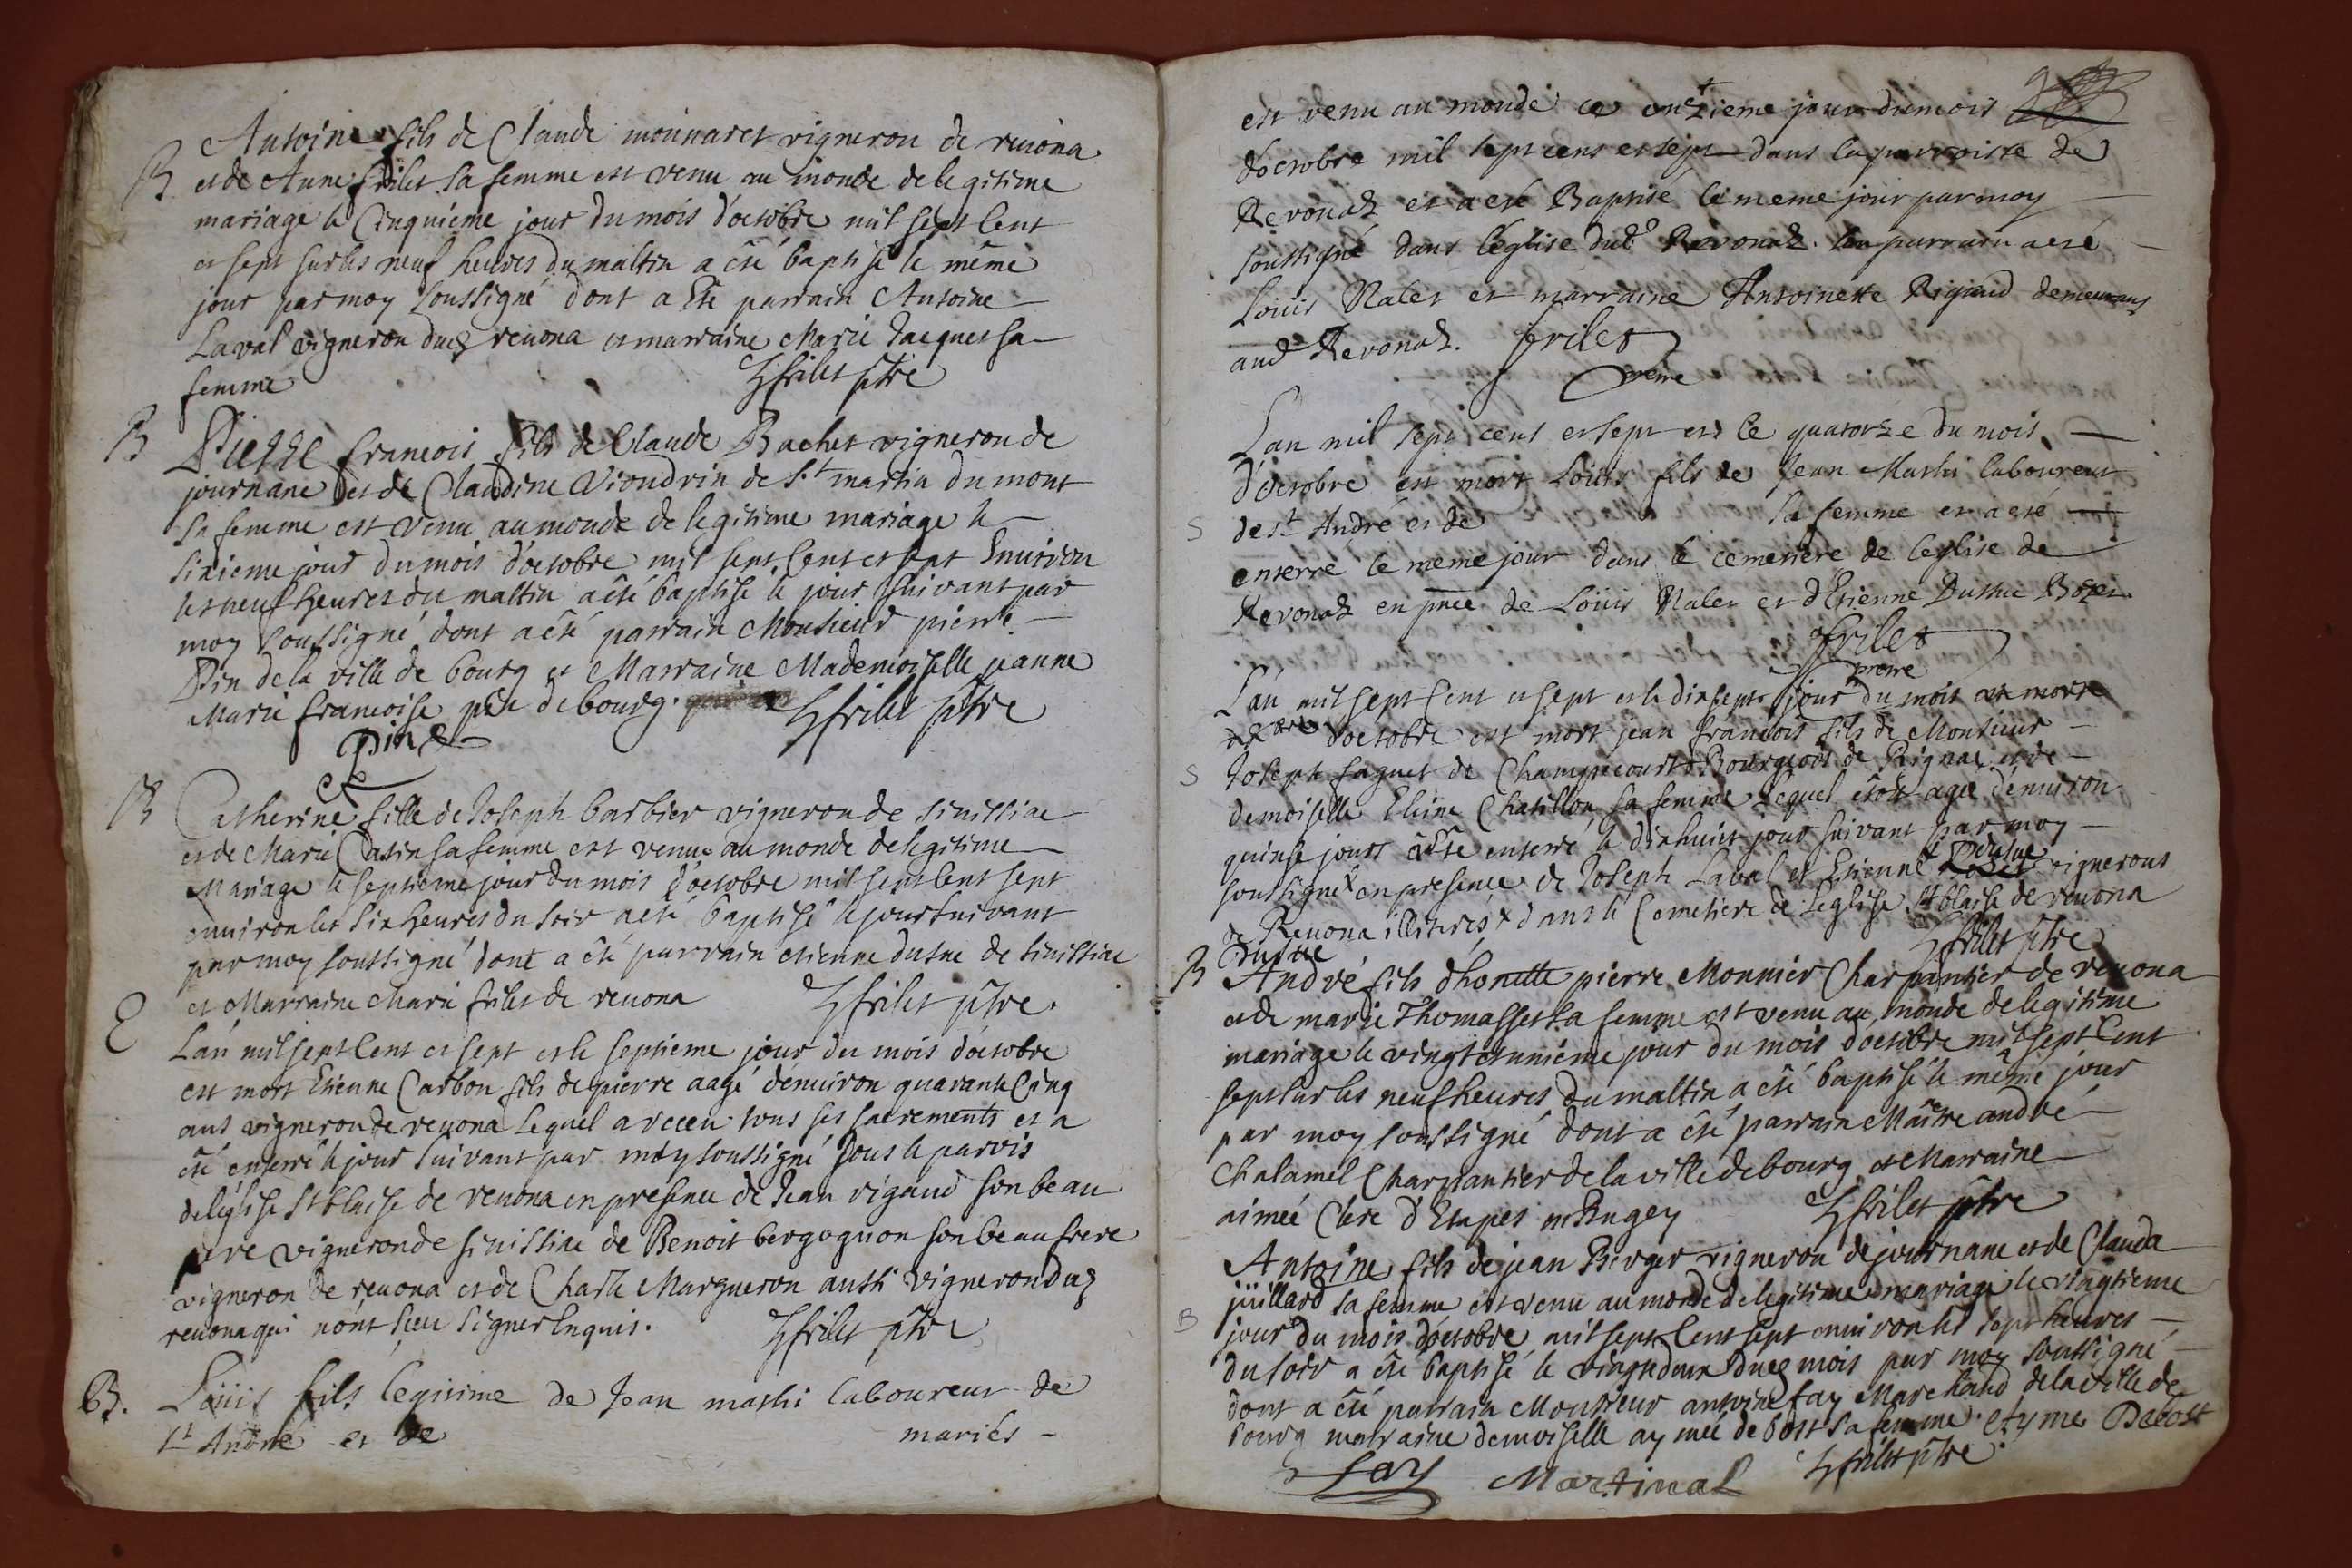 B Antoine fils de Claude monnaret vigneron de reuona
et de Anne frilet sa femme est venu au monde de legitime
mariage le Cinquieme jour du mois d'octobre mil sept Cent
et sept sur les neuf heures du mattin a été baptisé le même
jour par moy soussigné dont a été parrain Antoine
Laval vigneron dud reuona et marraine Marie Jacques sa
femme frilet ptre
B Pierre francois fils de Claude Bachet vigneron de
journane et de Claudine Vioudrin de St martin du mont
sa femme est venu au monde de legitime mariage le
sixieme jour du mois d'octobre mil sept Cent et sept Enuiron
les neuf heures du mattin a été baptisé le jour suivant par
moy soussigné dont a été parrain Monsieur pierre
Pin de la ville de bourg et Marraine Mademoiselle jeanne
Marie francoise de bourg. frilet ptre
pine
B Catherine fille de Joseph barbier vigneron de sinissiac
et de Marie Catin sa femme est venue au monde de legitime
Mariage le septieme jour du mois d'octobre mil sept Cent sept
enuiron les six heures du soir a été baptisé le jour suivant
par moy soussigné dont a été parrain etienne dutue de sinissiac
et Marraine Marie frilet de reuona frilet ptre.
E L'an mil sept Cent et sept et le septieme jour du mois d'octobre
est mort Etienne Carbon fils de pierre aagé d'enuiron quarante Cinq
ans vigneron de reuona lequel a receu tous ses sacrements et a
été enterré le jour suivant par moy soussigné sous le parvis
de léglise St blaise de reuona en presence de Jean rigaud son beau
pere vigneron de sinissiac de Benoit bergognon son beau frere
vigneron de reuona et de Charle Margueron aussi vigneron dud
reuona qui n'ont sceu signer Enquis. frilet ptre
B. Loüis fils legitime de Jean mathi laboureur de
St André et de mariés -
9
est venu au monde ce onzieme jour du mois
d'octobre mil sept cens et sept dans la parroisse de
Revonaz et a eté Baptisé le meme jour par moy
soussigné dans l'église dud Revonaz. son parrain a eté
Loüis Nalet et marraine Antoinette Rigaud demeurans
aud Revonaz. frilet
pretre
L'an mil sept cens et sept et le quatorze du mois
d'octobre est mort Loüis fils de Jean Mathi laboureur
S de St André et de sa femme et a eté
enterré le meme jour dans le cemetiere de l'eglise de
Revonaz en pnce de Loüis Nalet et d'Etienne Duthie Bozet.
frilet
pretre
L'an mil sept Cent et sept et le dixsept jour du mois est mort
d'octobre est mort jean francois fils de Monsieur
S Joseph faguet de Champrecourt Bourgeois de Pignac et de
demoiselle Eleine Chatillon sa femme lequel étoit agé d'enuiron
quinse jours a été enterré le dixhuict jour suivant par moy
soussigné x en presence de Joseph Laval et Etienne dutue vignerons
de Reuona illiterés x dans le Cemetiere de l'église St blaise de reuona
dutue frilet ptre
B André fils d'honette pierre Monnier Charpantier de reuona
et de marie Thomasset sa femme est venu au monde de legitime
mariage le vingt et unieme jour du mois d'octobre mil sept Cent
sept sur les neuf heures du mattin a été baptisé le même jour
par moy soussigné dont a été parrain Maitre andré
Chalamel Charpantier de la ville de bourg et Marraine
aimée Clere d'Etapes en Bugey frilet ptre
Antoine fils de jean Berger vigneron de journane et de Clauda
juillard sa femme est venu au monde de legitime mariage le vingtieme
B jour du mois d'octobre mil sept Cent sept enuiron les sept heures
du soir a été baptisé le vingtdeux dud mois par moy soussigné
dont a été parrain Monsieur antoine fay Marchand de la ville de
bourg marraine demoiselle aymée de bost sa femme. Ayme Debost
fay Martinal frilet ptre